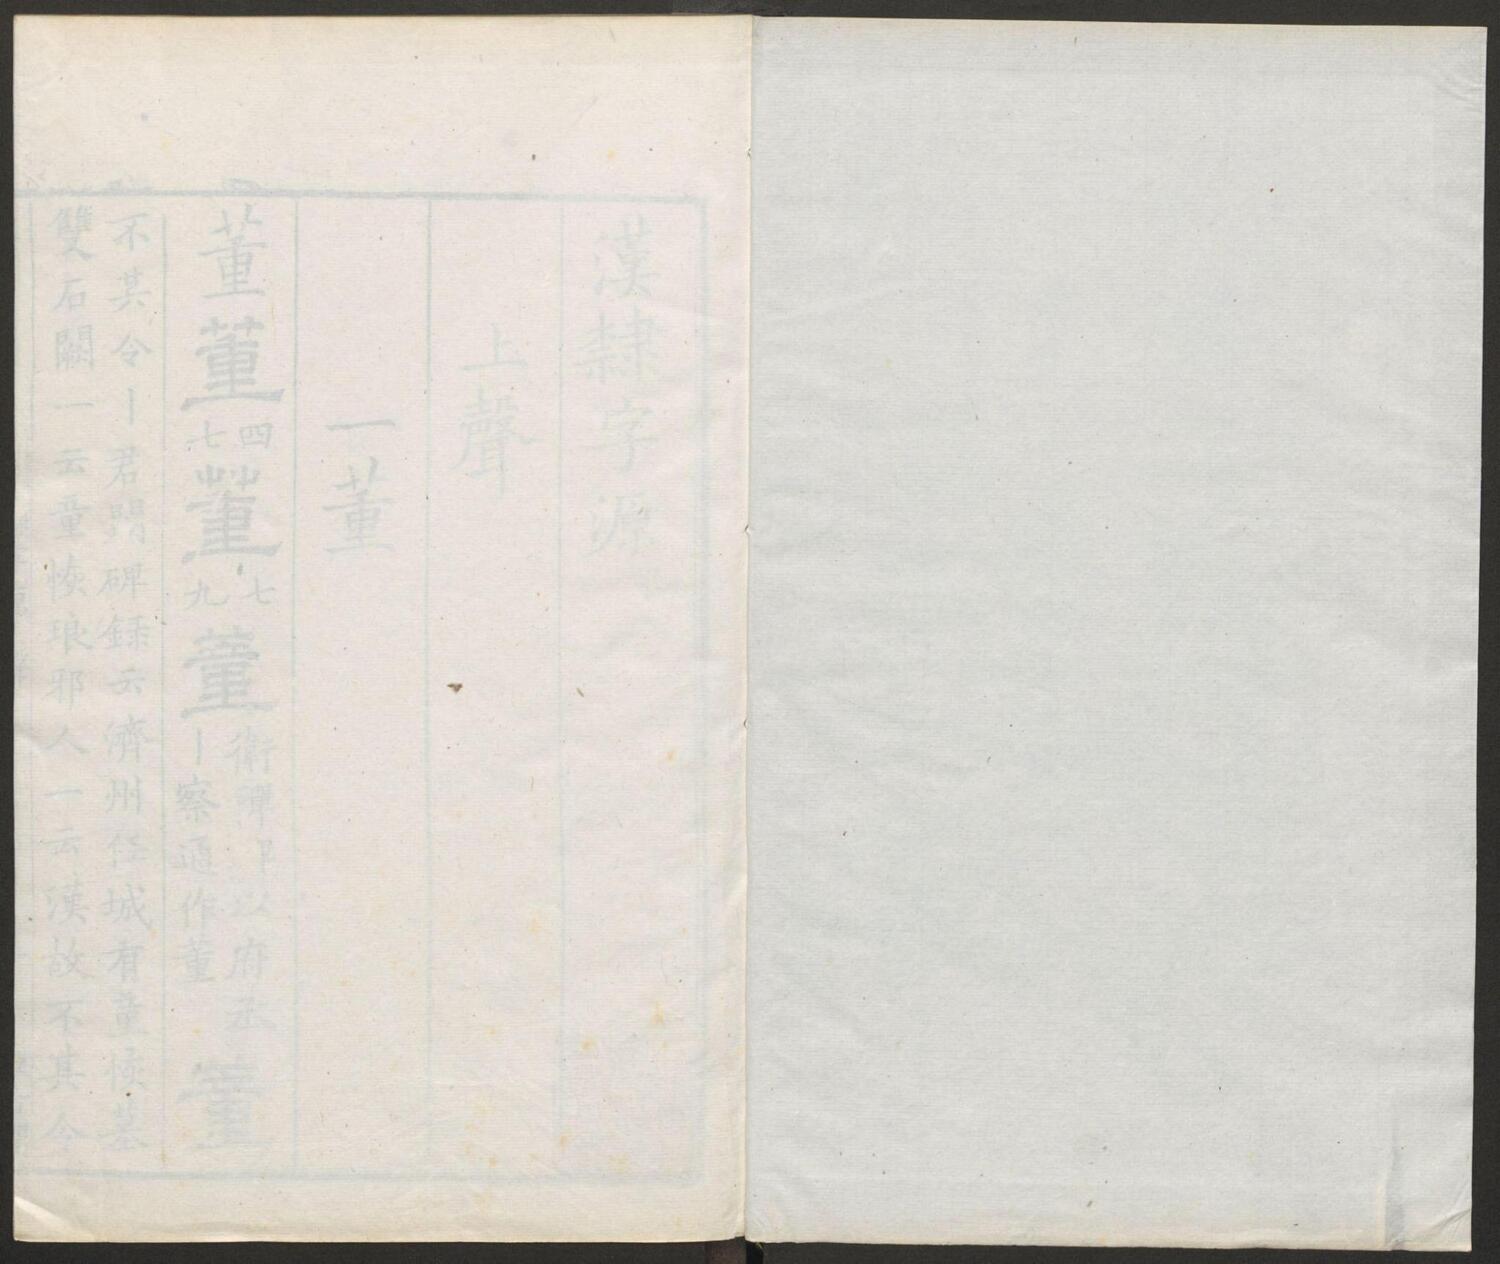 漢隸字源
上聲
一董
董董四七董七九董衡彈以府丞丨察通作董董
不其令丨君闕碑錄云濟州任城有童恢墓
雙石闕一云童恢琅邪人一云漢故不其令